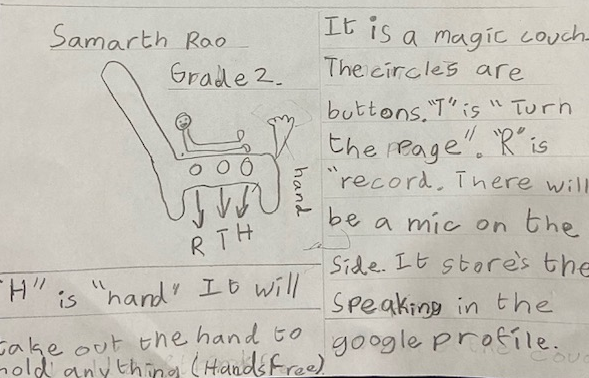 Samarth Rao
Grade 2.
hand
R T H
"H" is "hand" It will
take out the hand to
hold anything (Handsfree)
It is a magic couch
The circles are
buttons. "T" is "Turn
the peage". "R" is
"record. There will
be a mic on the
side. It store's the
speaking in the
google profile.